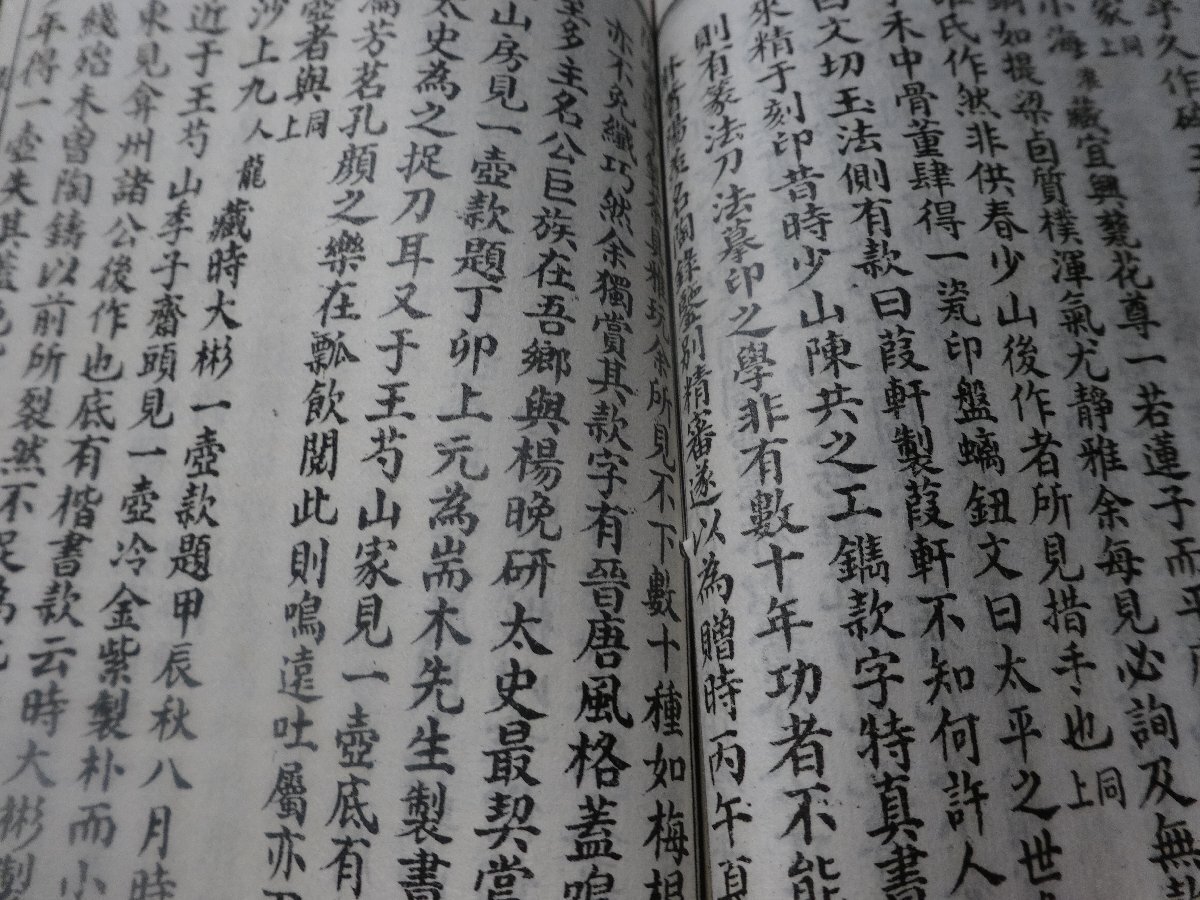 年久作
家同上
小海東藏宜興甆花尊一若蓮子而平
銅如提梁卣質樸渾氣尤静雅余每見必詢及無
氏作然非供春少山後作者所見措手也同上
禾中骨董肆得一瓷印盤螭鈕文曰太平之世
曰文切玉法側有款曰葭軒製葭軒不知何許人
來精于刻印昔時少山陳共之工鐫款字特真書
則有篆法刀法摹印之學非有數十年功者不能
鑒別精審遂以為贈時丙午
余所見不下數十種如梅根
亦不免纖巧然余獨賞其款字有晉唐風格蓋鳴
至多主名公巨族在吾鄉與楊晚研太史最契嘗
山房見一壺款題丁卯上元為耑木先生製書
太史為之捉刀耳又于王芍山家見一壺底有
為芳茗孔顏之樂在瓢飲閱此則鳴遠吐屬亦
壺者與同上
沙上九人龍藏時大彬一壺款題甲辰秋八月時
近于王芍山季子齋頭見一壺冷金紫製朴而小
東見弇州諸公後作也底有楷書款云時大彬製
綫殆未曾陶鑄以前所裂然不足為
年得一壺失其蓋色